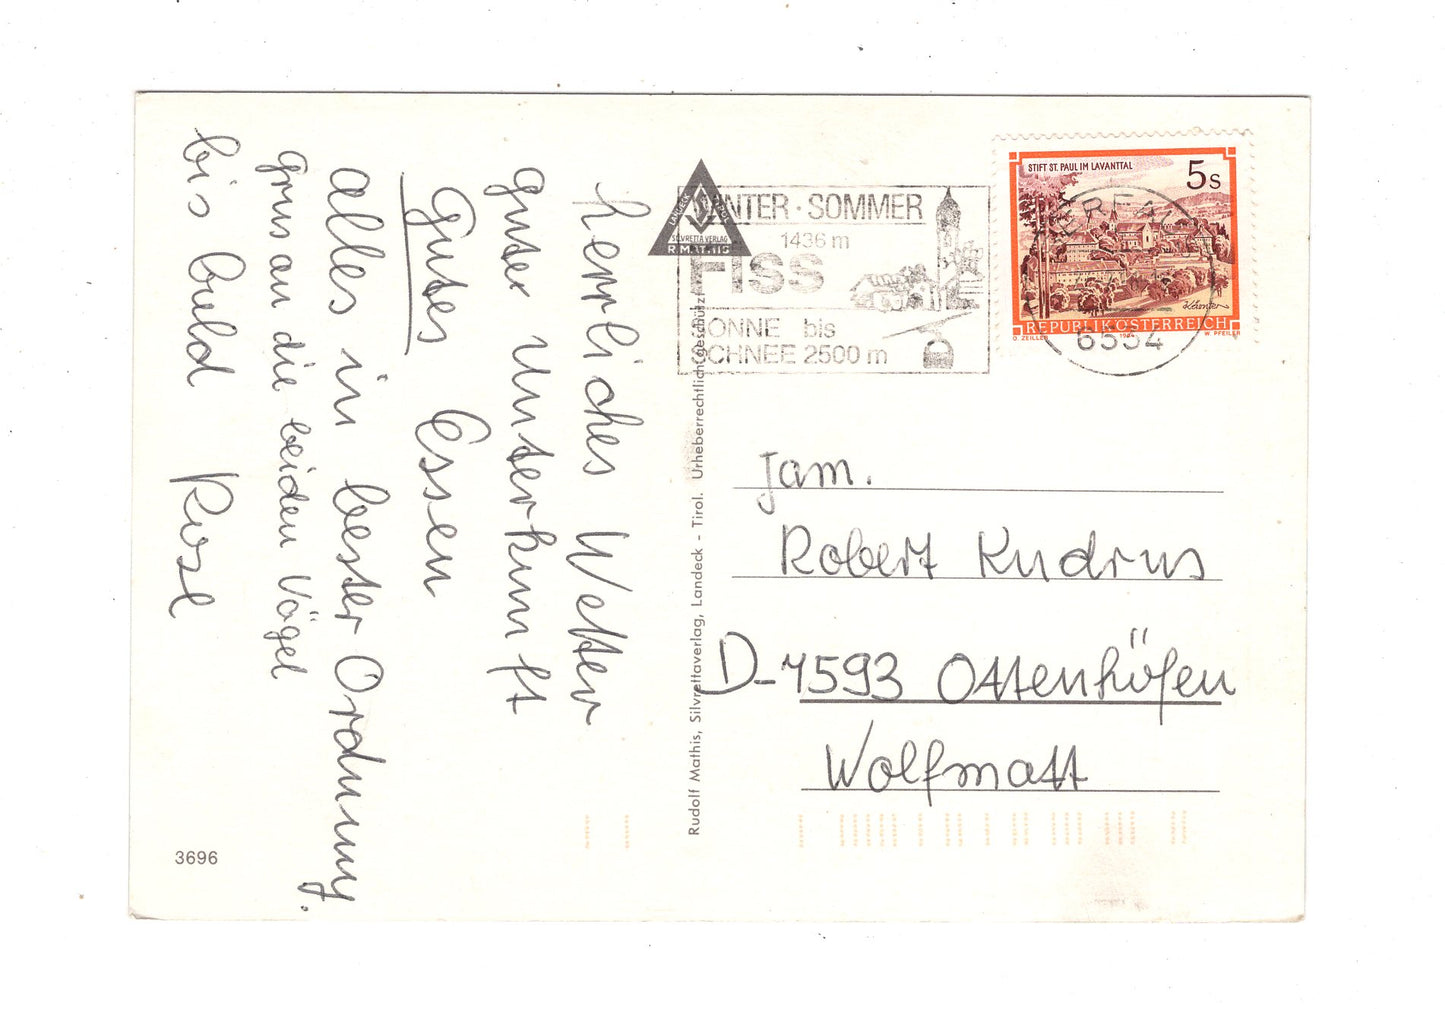 herrliches Wetter
guter Unterkunft
Gutes Essen
alles in bester Ordnung.
grus an die beiden Vögel
bis bald Rosl
3696
Rudolf Mathis, Silvrettaverlag, Landeck - Tirol. Urheberrechtlich geschützt
SILVRETTA VERLAG
WINTER · SOMMER
1436 m
FISS
SONNE bis
SCHNEE 2500 m
STIFT ST. PAUL IM LAVANTTAL
5 S
REPUBLIK ÖSTERREICH
O. ZEILLER 1984 W. PFEILER
6534
Fam.
Robert Kudrus
D-7593 Ottenhöfen
Wolfmatt